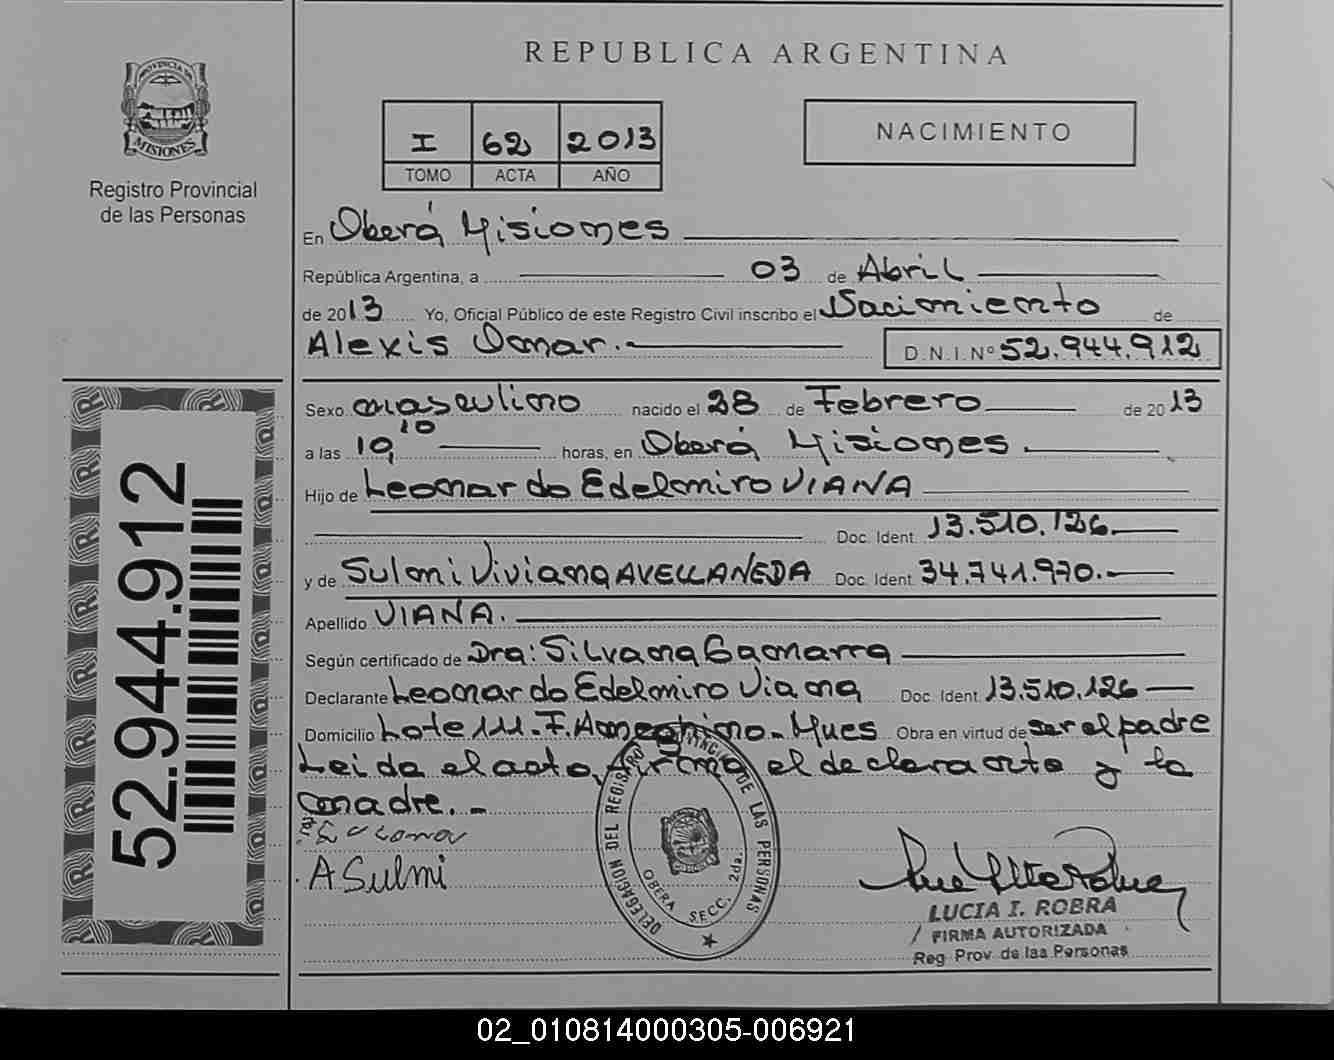 REPUBLICA ARGENTINA
PROVINCIA DE
MISIONES
Registro Provincial
de las Personas
I 62 2013
TOMO ACTA AÑO
NACIMIENTO
En Oberá Misiones
República Argentina, a 03 de Abril
de 2013 Yo, Oficial Público de este Registro Civil inscribo el Nacimiento de
Alexis Omar.- D.N.I. Nº 52.944.912
Sexo masculino nacido el 28 de Febrero de 2013
a las 10,10 horas, en Oberá Misiones.
Hijo de Leonardo Edelmiro VIANA
Doc. Ident. 13.510.126.
y de Sulmi Viviana AVELLANEDA Doc. Ident. 34.741.970.-
Apellido VIANA.
Según certificado de Dra: Silvana Gamarra
Declarante Leonardo Edelmiro Viana Doc. Ident. 13.510.126
Domicilio Lote 111. F. Ameghino - Obra en virtud de ser el padre
Leida el acta, firma el declarante y la
madre.-
A Sulmi
DELEGACION DEL REGISTRO PROVINCIAL DE LAS PERSONAS
OBERA SECC. 2da.
LUCIA I. ROBRA
FIRMA AUTORIZADA
Reg. Prov. de las Personas
52.944.912
02_010814000305-006921